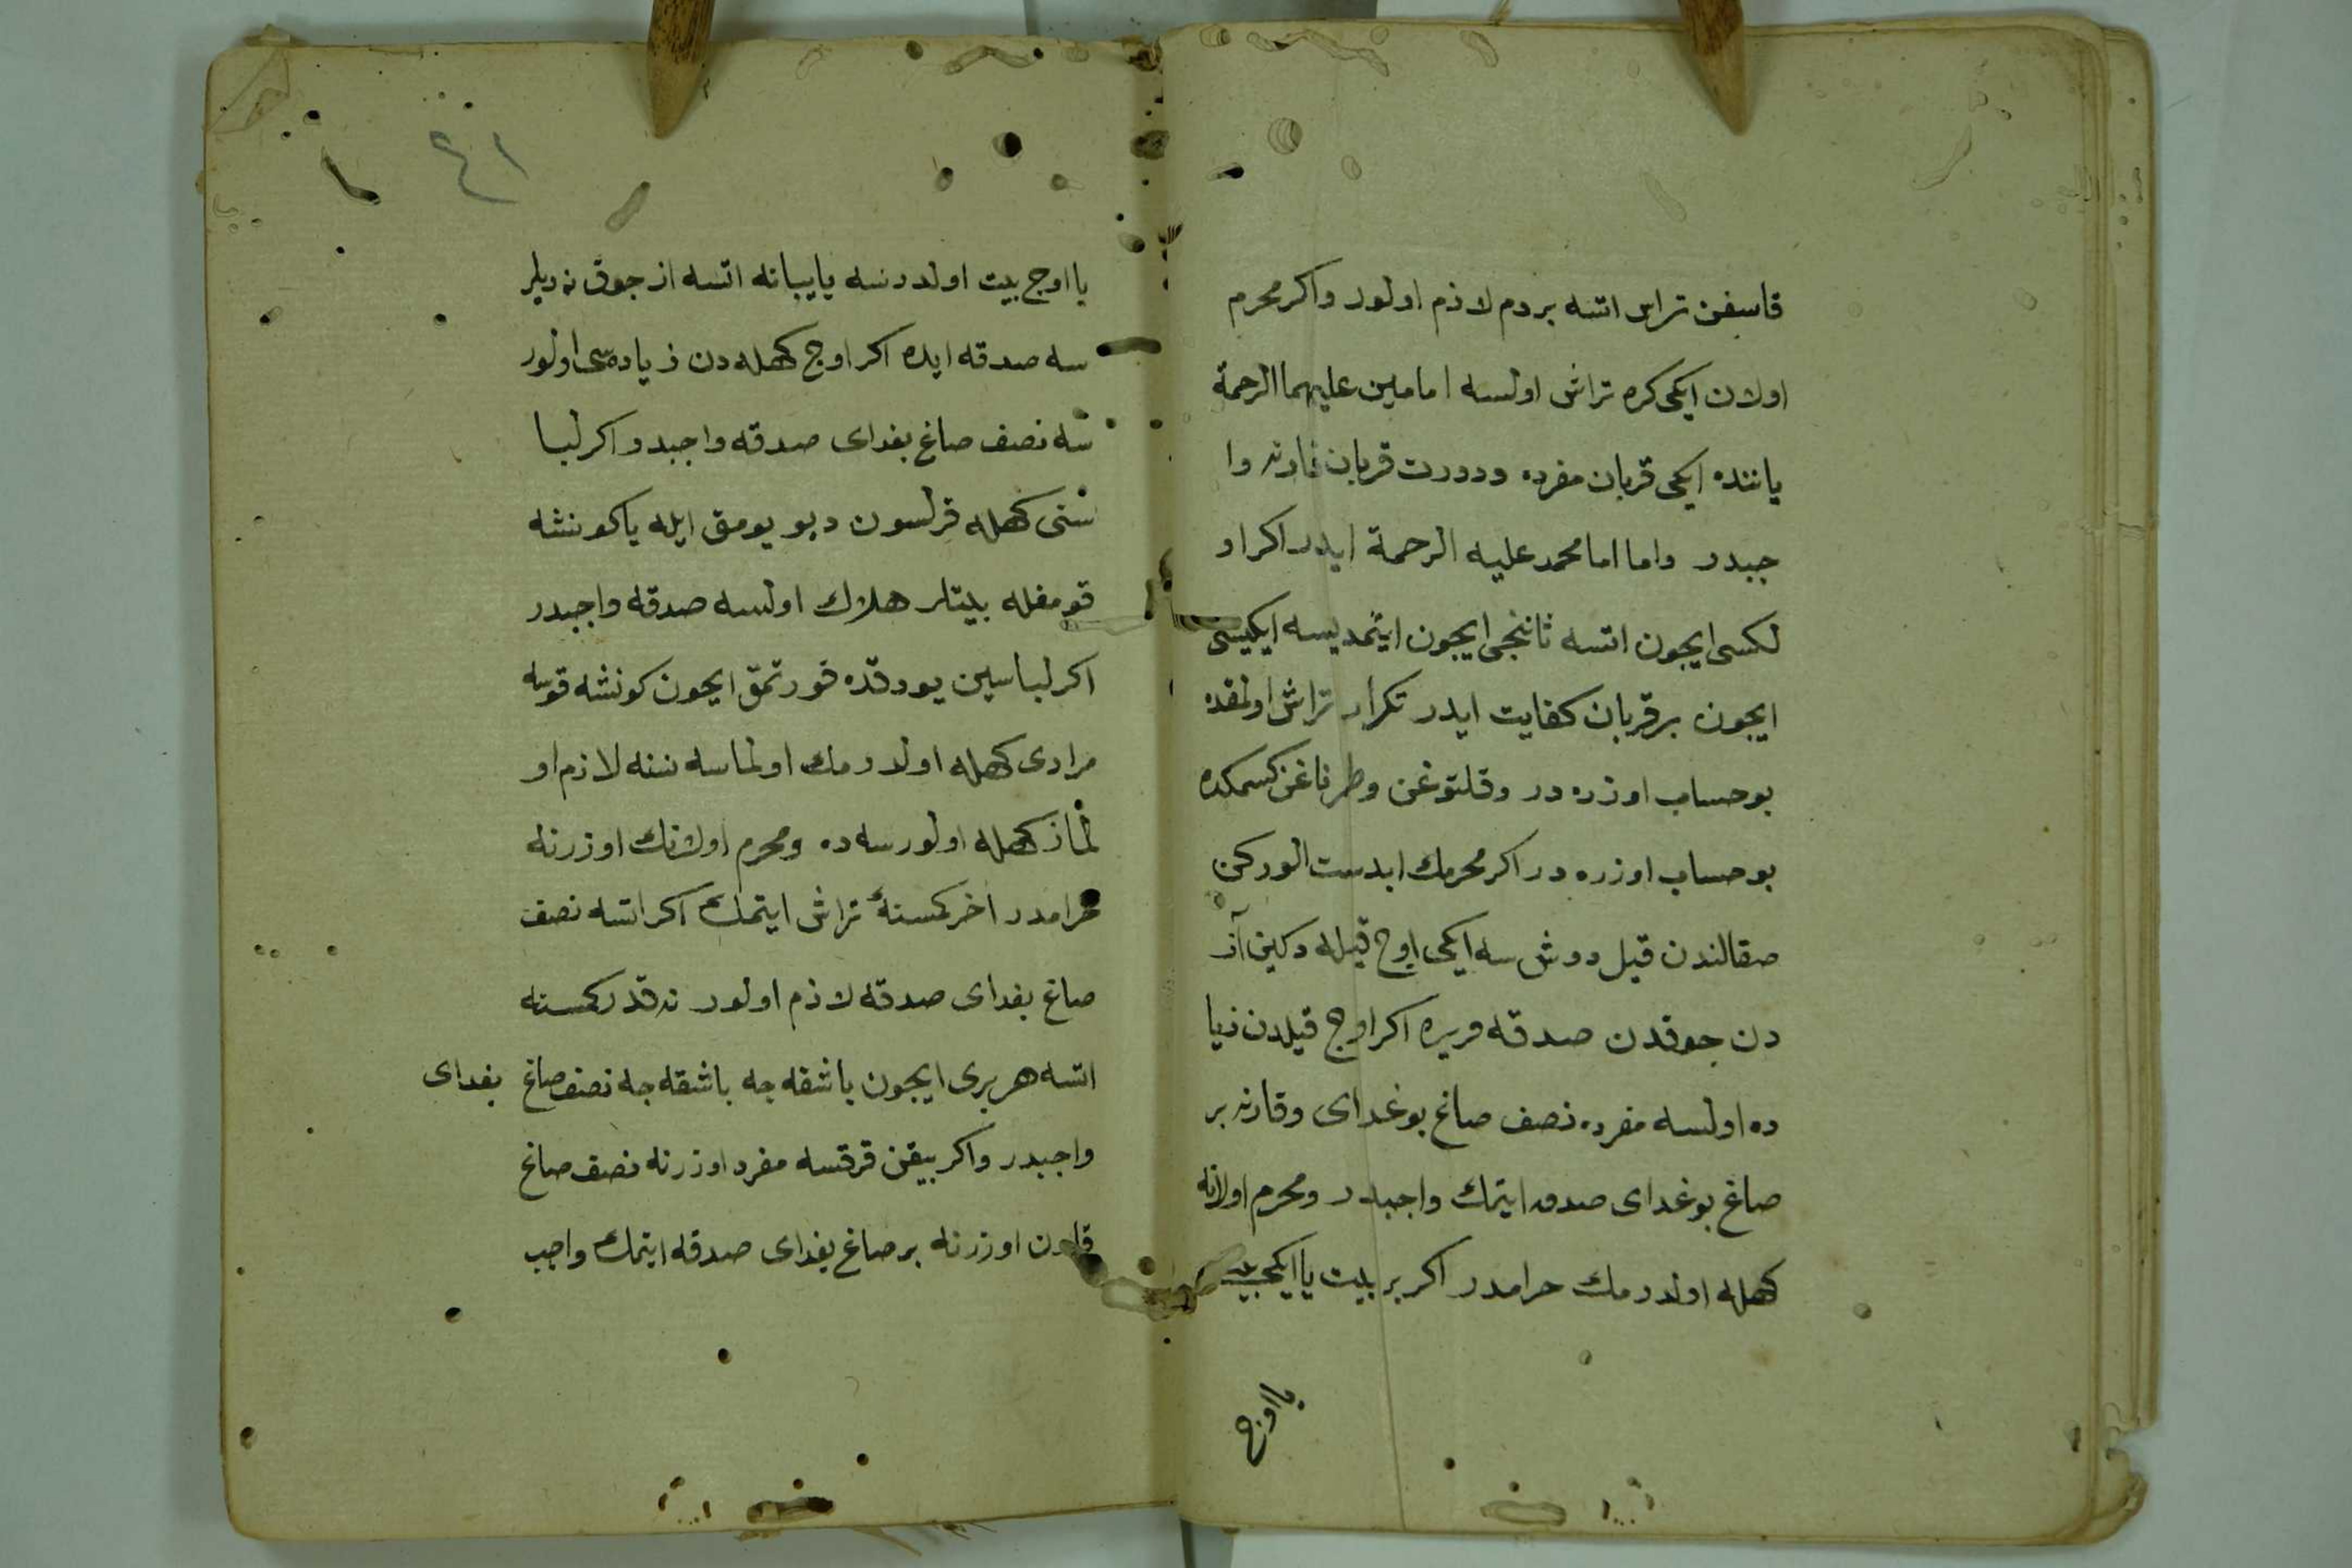 قاسیفن تراش اتسه بر دم لازم اولور واكر محرم
اولان ایكی كره تراش اولسه امامین علیهما الرحمة
یاننده ایكی قربان مفرده ودورت قربان قارنه وا
جبدر واما امام محمد علیه الرحمة ایدر اكر او
لكسی ایجون اتسه ثاننجی ایجون ایتمدیسه ایكیسی
ایجون بر قربان كفایت ایدر تكرار تراش اولمقده
بو حساب اوزره در وقلتوغن وطرناغن كسمكده
بو حساب اوزره در اكر محرمك ابدست الوركن
صقالندن قیل دوش سه ایكی اوج قیله دكین آز
دن جوقدن صدقه ویره اكر اوج قیلدن زیا
ده اولسه مفرده نصف صاغ بوغدای وقارنه بر
صاغ بوغدای صدقه ایتمك واجبدر ومحرم اولانه
كهله اولدرمك حرامدر اكر بر بیت یا ایكی بیت
یا اوج
٤١
یا اوج بیت اولدرسه یا یبانه اتسه از جوق نه دیلر
سه صدقه ایده اكر اوج كهله دن زیاده سی اولور
سه نصف صاغ بغدای صدقه واجبدر واكر لبا
سنی كهله قرلسون دیو یومق ایله یا كونشه
قومغله بیتلر هلاك اولسه صدقه واجبدر
اكر لباسین یودقده قورتمق ایجون كونشه قوسه
مرادی كهله اولدرمك اولماسه نسنه لازم او
لماز كهله اولورسه ده ومحرم اولانك اوزرنه
حرامدر اخر كمسنهٔ تراش ایتمك اكر اتسه نصف
صاغ بغدای صدقه لازم اولور نه قدر كمسنه
اتسه هر بری ایجون باشقه جه باشقه جه نصف صاغ بغدای
واجبدر واكر بیقن قرقسه مفرد اوزرنه نصف صاغ
قارن اوزرنه بر صاغ بغدای صدقه ایتمك واجب